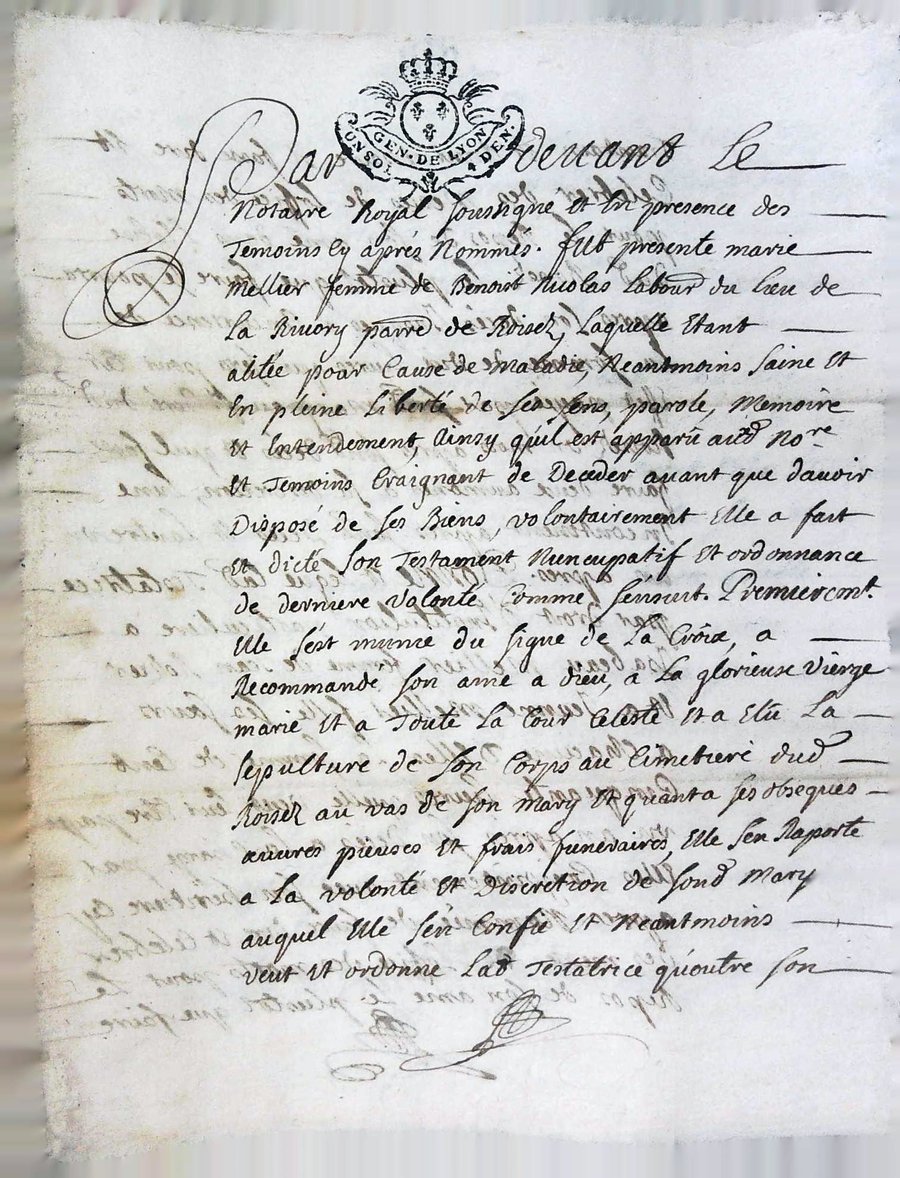 GEN · DE LYON
UN SOL 4 DEN ·
Par devant Le
Notaire Royal soussigné et En presence des
Temoins Cy aprés Nommés. fut presente marie
Mellier femme de Benoist Nicolas Labour du Lieu de
La Rivory parre de Roisez, Laquelle Etant
alitée pour Cause de Maladie, Neantmoins saine Et
En pleine Liberté de ses sens, parole, Memoire
et Entendement, Ainsy qu'il est apparu aud Nore
Et Temoins Craignant de Deceder avant que davoir
Disposé de ses Biens, volontairement Elle a fait
Et dicté son Testament Nuncupatif Et ordonnance
de derniere volonté Comme sénsuit. Premieremt.
Elle sést munie du signe de La Croix, a
Recommandé son ame a dieu, a La glorieuse Vierge
marie Et a Toute La Cour Celeste Et a Elû La
sepulture de son Corps au Cimetiere dud
Roisez au vas de son mary Et quant a ses obseques
œuvres pieuses Et frais funeraires, Elle s'en Raporte
a La volonté Et Discretion de sond Mary
auquel Elle s'en Confie Et Neantmoins
veut Et ordonne Lad Testatrice qu'outre son